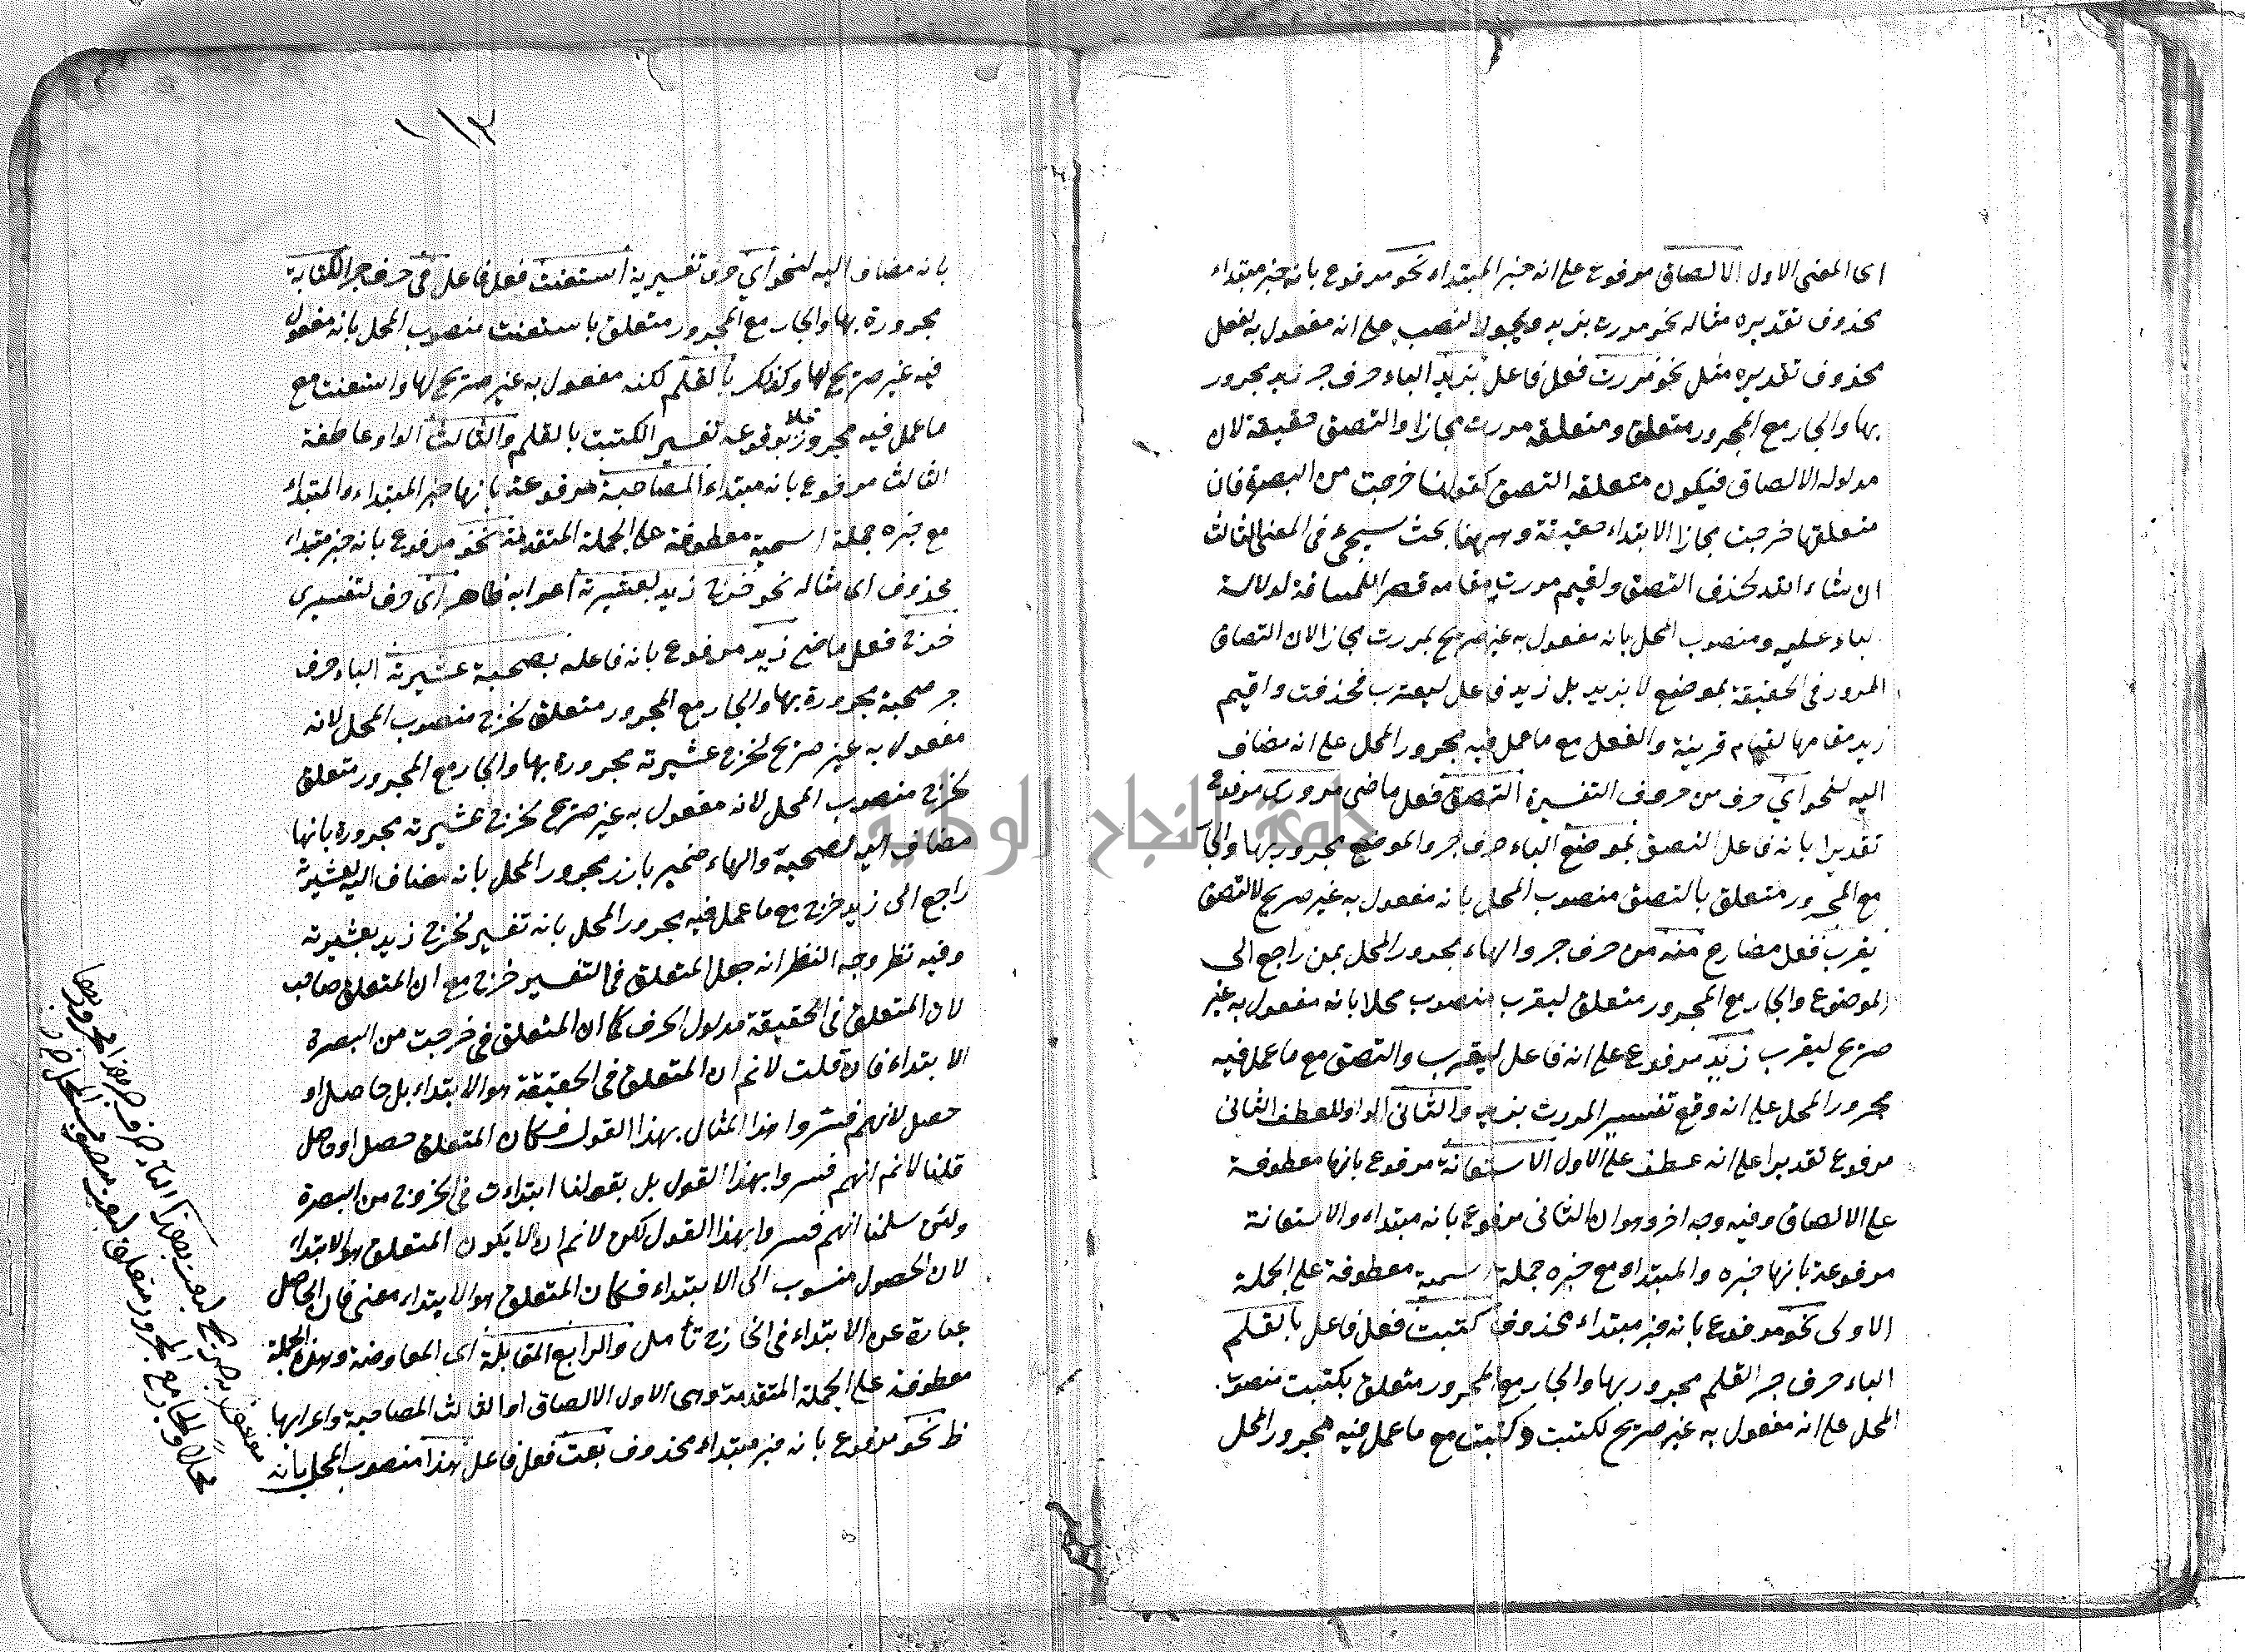 اى المعنى الاول الالصاق مرفوع على انه خبر المبتداء نحو مرفوع بانه خبر مبتداء
محذوف تقديره مثاله نحو مررت بزيد ويجوز النصب على انه مفعول به لفعل
محذوف تقديره مثل نحو مررت فعل فاعل بزيد الباء حرف جر زيد مجرور
بها والجار مع المجرور متعلق ومتعلقه مررت مجازا والتصق حقيقة لان
مدلوله الالصاق فيكون متعلقه التصق كقولنا خرجت من البصرة فان
متعلقها خرجت مجازا الابتداء حقيقة وههنا بحث سيجئ فى المعنى الثالث
ان شاء الله لحذف التصق واقيم مررت مقامه قصرا للمسافة لدلالة
الباء عليه ومنصوب المحل بانه مفعول به غير صريح لمررت مجازا لان التصاق
المرور فى الحقيقة بموضع لا بزيد بل زيد فاعل ليقرب فحذفت واقيم
زيد مقامها لقيام قرينة والفعل مع ما عمل فيه مجرور المحل على انه مضاف
اليه لنحو اي حرف من حروف التفسيرة التصق فعل ماضى مرورى مرفوع
تقديرا بانه فاعل التصق بموضع الباء حرف جر والموضع مجرور بها والجار
مع المجرور متعلق بالتصق منصوب المحل بانه مفعول به غير صريح لالتصق
يقرب فعل مضارع منه من حرف جر والهاء مجرور المحل بمن راجع الى
الموضوع والجار مع المجرور متعلق ليقرب منصوب محلا بانه مفعول به غير
صريح ليقرب زيد مرفوع على انه فاعل ليقرب والتصق مع ما عمل فيه
مجرور المحل على انه وقع تفسير المررت بزيد والثانى الواو للعطف الثانى
مرفوع تقديرا على انه عطف على الاول الاستعانة مرفوع بانها معطوفة
على الالصاق وفيه وجه اخر وهو ان الثانى مرفوع بانه مبتداء والاستعانة
مرفوعة بانها خبره والمبتداء مع خبره جملة اسمية معطوفة على الجملة
الاولى نحو مرفوع بانه خبر مبتداء محذوف كتبت فعل فاعل بالقلم
الباء حرف جر القلم مجرور بها والجار مع المجرور متعلق بكتبت منصوب
المحل على انه مفعول به غير صريح لكتبت وكتبت مع ما عمل فيه مجرور المحل
١١٢
بانه مضاف اليه لنحو اي حرف تفسيرية استعنت فعل فاعل فى حرف جر الكتابة
مجرورة بها والجار مع المجرور متعلق باستعنت منصوب المحل بانه مفعول
فيه غير صريح لها وكذلك بالقلم لكنه مفعول به غير صريح لها واستعنت مع
ما عمل فيه مجرور بوقوعه تفسير الكتبت بالقلم والثالث الواو عاطفة
الثالث مرفوع بانه مبتداء المصاحبة مرفوعة بانها خبر المبتداء والمبتداء
مع خبره جملة اسمية معطوفة على الجملة المتقدمة نحو مرفوع بانه خبر مبتداء
محذوف اى مثاله نحو خرج زيد بعشيرته اعرابه ظاهر اى حرف لتفسيرى
خرج فعل ماضى زيد مرفوع بانه فاعله بصحبة عشيرته الباء حرف
جر صحبة مجرورة بها والجار مع المجرور متعلق لخرج منصوب المحل لانه
مفعول به غير صريح لخرج عشيرته مجرورة بها والجار مع المجرور متعلق
لخرج منصوب المحل لانه مفعول به غير صريح لخرج عشيرته مجرورة بانها
مضاف اليه لصحبة والهاء ضمير بارز مجرور المحل بانه مضاف اليه لعشيرة
راجع الى زيد خرج مع ما عمل فيه مجرور المحل بانه تفسير لخرج زيد بعشيرته
وفيه نظر وجه النظر انه جعل المتعلق فى التفسير خرج مع ان المتعلق صاحب
لان المتعلق فى الحقيقة مدلول الحرف كما ان المتعلق فى خرجت من البصرة
الابتداء فان قلت لانم ان المتعلق فى الحقيقة هو الابتداء بل حاصل او
حصل لانهم فسروا هذا المثال بهذا القول فكان المتعلق حصل او حاصل
قلنا لانم انهم فسروا بهذا القول بل بقولنا ابتداءت فى الخروج من البصرة
ولئن سلمنا انهم فسروا بهذا القول لكن لانم ان لا يكون المتعلق هو الابتداء
لان الحصول منسوب الى الابتداء فكان المتعلق هو الابتداء معنى فان الحاصل
عبارة عن الابتداء فى الخارج تأمل والرابع المقابلة اى المعاوضة وهذه الجملة
معطوفة على الجملة المتقدمة وهى الاول الالصاق او الثالث المصاحبة واعرابها
ظ نحو مرفوع بانه خبر مبتداء محذوف بعت فعل فاعل هذا منصوب المحل بانه
مفعول به صريح لبعت بهذا الباء حرف جر هذا مجرور بها
محلا والجار مع المجرور متعلق لبعت منصوب المحل
جامعة النجاح الوطنية